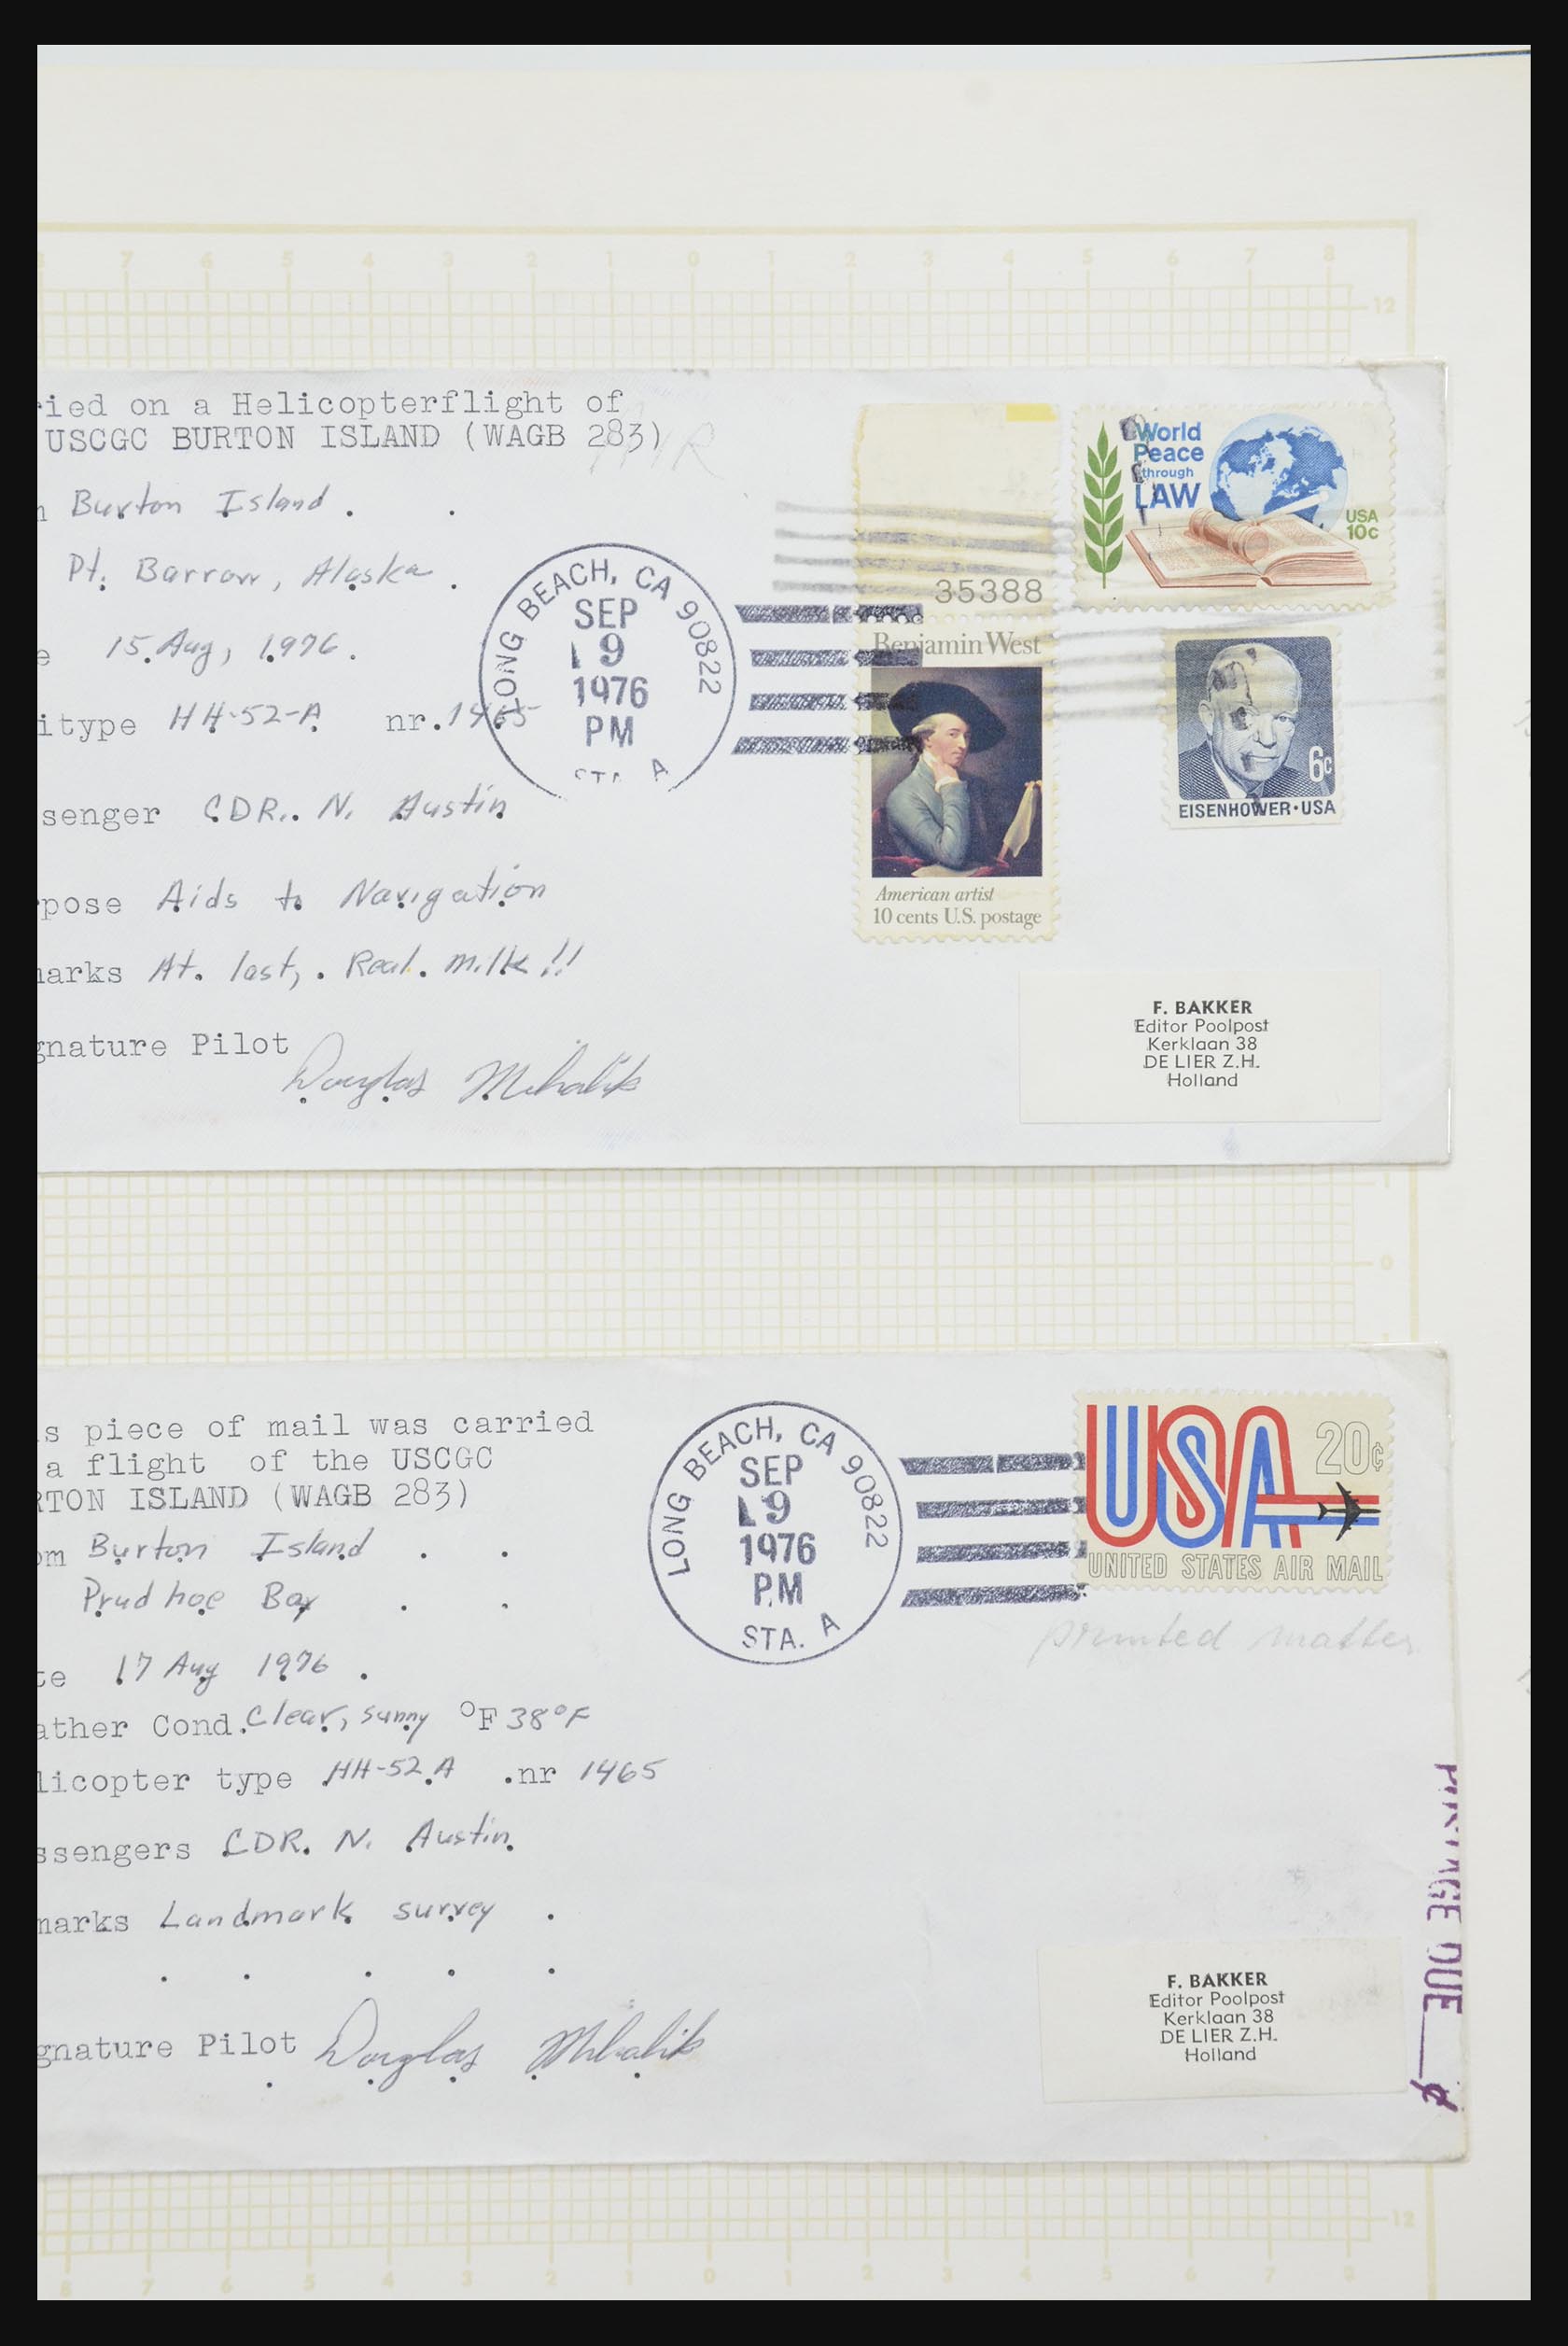 7 6 5 4 3 2 1 0 1 2 3 4 5 6 7 8
12
ried on a Helicopterflight of
USCGC BURTON ISLAND (WAGB 283)
Burton Island .
Pt. Barrow, Alaska .
e 15 Aug, 1976.
itype HH-52-A nr. 1465
senger CDR. N. Austin
pose Aids to Navigation
marks At last, Real milk!!
gnature Pilot Douglas Mihalik
LONG BEACH, CA 90822
SEP
9
1976
PM
STA. A
35388
Benjamin West
American artist
10 cents U.S. postage
World
Peace
through
LAW
USA
10c
6c
EISENHOWER·USA
F. BAKKER
Editor Poolpost
Kerklaan 38
DE LIER Z.H.
Holland
1
0
s piece of mail was carried
a flight of the USCGC
RTON ISLAND (WAGB 283)
om Burton Island
Prudhoe Bay
te 17 Aug 1976 .
ather Cond. Clear, sunny °F 38°F
licopter type HH-52 A .nr 1465
ssengers CDR. N. Austin.
marks Landmark survey .
gnature Pilot Douglas Mihalik
LONG BEACH, CA 90822
SEP
9
1976
PM
STA. A
USA 20c
UNITED STATES AIR MAIL
printed matter
POSTAGE DUE ___¢
F. BAKKER
Editor Poolpost
Kerklaan 38
DE LIER Z.H.
Holland
12
8 7 6 5 4 3 2 1 0 1 2 3 4 5 6 7 8